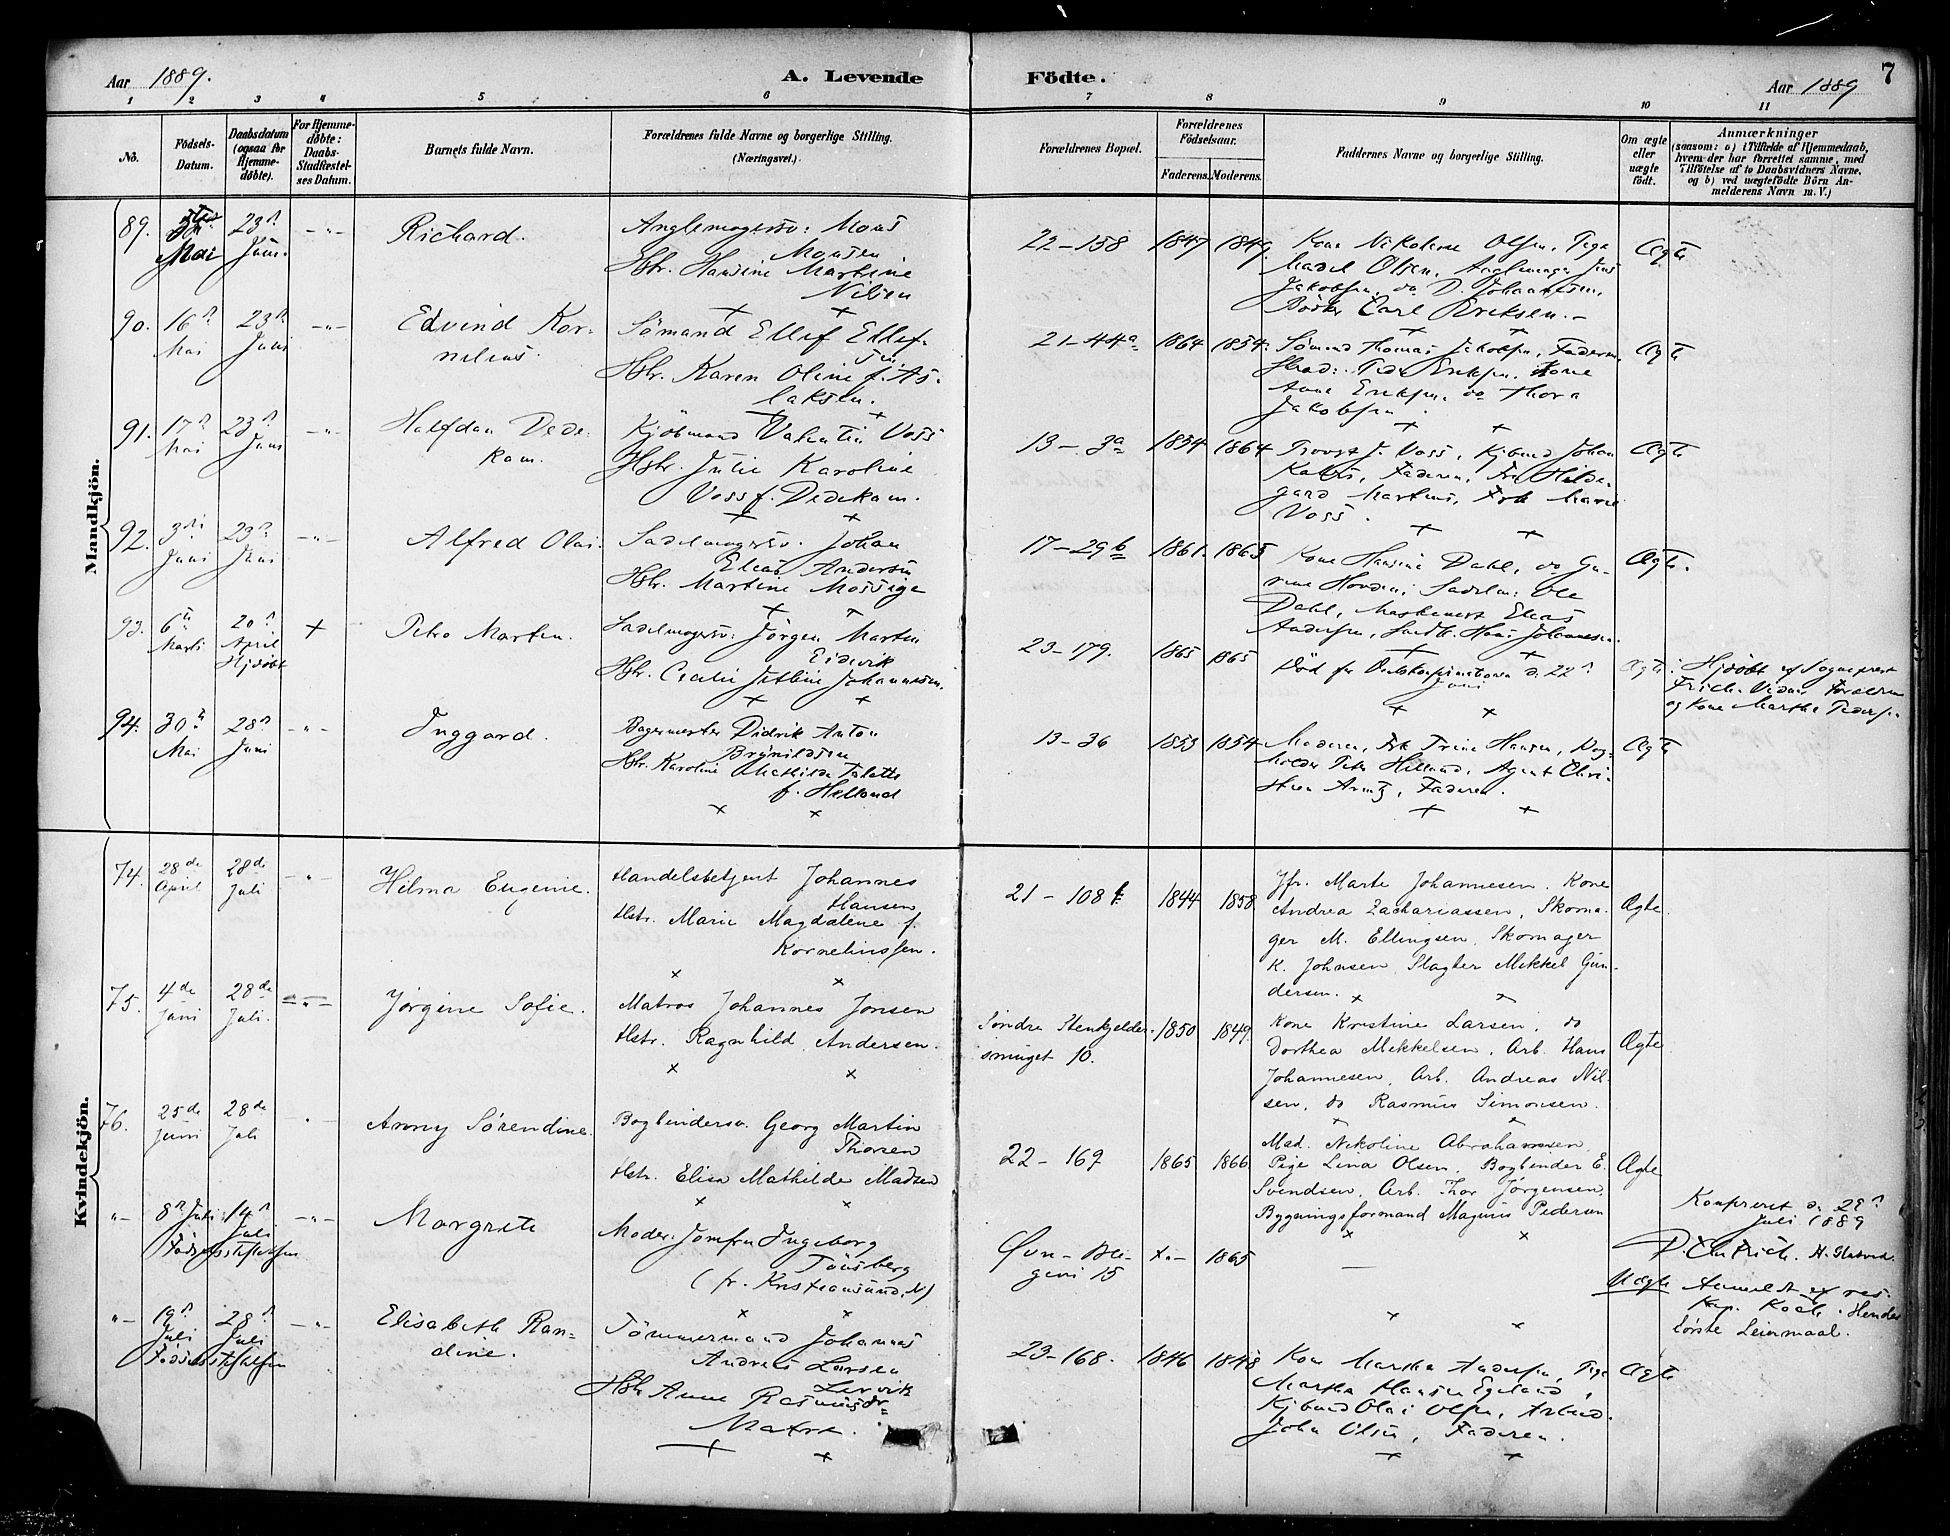 Aar 1889.
A. Levende Födte.
Aar 1889
7
1 2 3 4 5 6 7 8 9 10 11
No.
Födsels-Datum.
Daabsdatum (ogsaa for Hjemme-döbte).
For Hjemme-döbte: Daabs-Stadfæstel-ses Datum.
Barnets fulde Navn.
Forældrenes fulde Navne og borgerlige Stilling.
(Næringsvei.)
Forældrenes Bopæl.
Forældrenes Födselsaar.
Faderens. Moderens.
Faddernes Navne og borgerlige Stilling.
Om ægte eller uægte födt.
Anmærkninger
(saasom: a) i Tilfælde af Hjemmedaab,
hvem der har forrettet samme, med
Tilföielse af to Daabsvidners Navne,
og b) ved uægtefödte Börn An-
melderens Navn m. V.)
Mandkjön.
89. Mai 23 Juni. -"- Richard.
Mons
Monsen
Hstr. Hansine Martine
Nilsen
22-158 1847 1849.
Kone Nikoline Olsen, Pige
Olsen,
Jakobsen, do D. Johannesen,
Bödker Carl Eriksen.-
Ægte
90. 16 Mai 23 Juni -"- Edvind Kor-
nelius.
Sömand Ellef Ellef-
sen
Hstr. Karen Oline f. As-
laksen.
21-44a 1864 1854.
Sömand Thomas Jakobsen, Faderen,
Eriksen, Kone
Anne Eriksen, do Thora
Jakobsen.
Ægte
91. 17 Mai 23 Juni -"- Halfdan Dede-
kam.
Kjöbmand Valentin Voss
Hstr. Julie Karoline
Voss f. Dedekam.
13-3a 1834 1864
Provst J. Voss, Kjbmd Johan
Faderen, Fru Hilde-
gard Martens, Frk Marie
Voss.
Ægte
92. 3 Juni 23 Juni -"- Alfred Olai.
Sadelmagersv. Johan
Elias Andersen
Hstr. Martine Mossige
17-29b 1861. 1865
Kone Hansine Dahl, do Gu-
rine Sadelm: Ole
Dahl, Maskinist Elias
Andersen, Hans Johannesen.
Ægte.
93. 6 Marts 20 April Hjdöbt + Petro Marten.
Sadelmagersv: Jörgen Marten
Eidevik
Hstr. Cecilie Johannesen.
23-179. 1865 1865
Död før d. 22
Juni
Ægte
Hjdöbt af Sogneprest
Frich. Vidner Forældrene
og Kone Marthe Pedersen
94. 30 Mai 28 Juni -"- Inggard.
Bagermester Didrik Anton
Brynildsen
Hstr. Karoline Mathilde
f. Helland
13-36 1853 1854
Moderen, Frk Trine Hansen,
Helland, Agent Chri-
Arntz, Faderen.
Ægte
Kvindekjön.
74. 28de April 28de Juli -"- Hilma Eugenie.
Handelsbetjent Johannes
Hansen
Hstr. Marie Magdalene f.
Korneliussen.
21 - 108 1844 1858
Jfr. Marte Johannesen. Kone
Andrea Zachariassen, Skoma-
ger M. Ellingsen, Skomager
K. Johnsen, Slagter Mikkel Gun-
dersen.
Ægte
75. 4de Juni 28de Juli. -"- Jörgine Sofie.
Matros Johannes Jonsen
Hstr. Ragnhild Andersen.
Söndre Stenkjelder-
smuget 10. 1850 1849.
Kone Kristine Larsen, do
Dorthea Mikkelsen, Arb. Hans
Johannesen, Arb. Andreas Nil-
sen, do Rasmus Simonsen.
Ægte
76. 25de Juni 28de Juli Anny Sörendine.
Bogbindersv. Georg Martin
Thorsen
Hstr. Elisa Mathilde Madsen
22 - 167 1865 1866
Mad. Nikoline Abrahamsen,
Pige Lina Olsen. Bogbinder E.
Svendsen, Arb. Thor Jörgensen,
Bygningsformand Magnus Pedersen
Ægte
"- 8 Juli 14 Juli -"- Margrete
Födselsstiftelsen
Moder: Jomfru Ingeborg
Tönsberg
(fr. Kristiansund, N)
15 1865
Uægte
Konfereret d. 29
Juli 1889
Anmeldt af res.
Kap. Koch. Hendes
förste Leiermaal.
"- 19 Juli 28 Juli -"- Elisabeth Ran-
dine.
Födselsstiftelsen
Tömmermand Johannes
Andreas Larsen
Lervik
Hstr Anne Rasmusdr
Matre.
23-168. 1846 1848
Kone Martha Andersen, Pige
Martha Hansen Egeland,
Kjbmd Olai Olsen, Arbmd.
John Olsen, Faderen.
Ægte